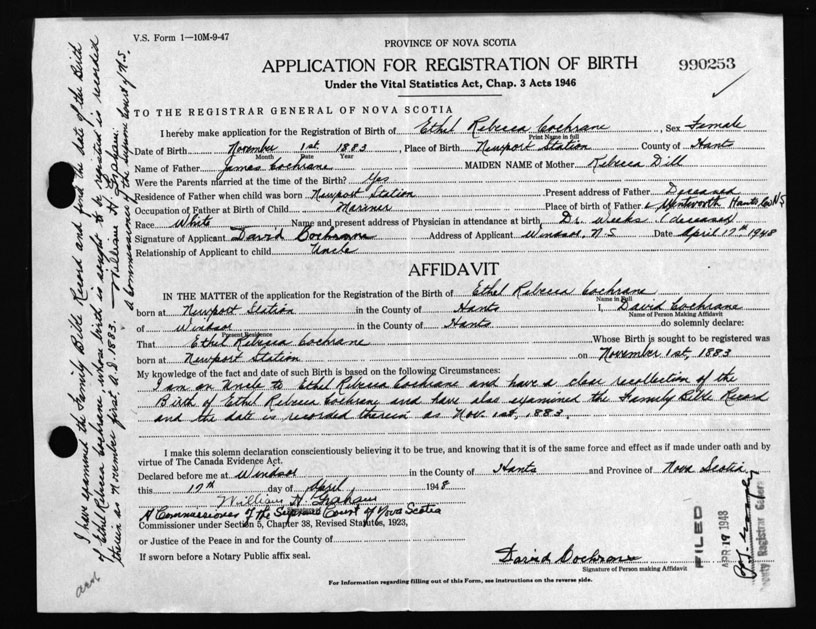 V.S. Form 1—10M-9-47
PROVINCE OF NOVA SCOTIA
APPLICATION FOR REGISTRATION OF BIRTH
990253
Under the Vital Statistics Act, Chap. 3 Acts 1946
TO THE REGISTRAR GENERAL OF NOVA SCOTIA
I hereby make application for the Registration of Birth of Ethel Rebecca Cochrane, Sex Female
Print Name in full
Date of Birth November 1st 1883, Place of Birth Newport Station County of Hants
Month Date Year
Name of Father James Cochrane MAIDEN NAME of Mother Rebecca Dill
Were the Parents married at the time of the Birth? Yes
Residence of Father when child was born Newport Station Present address of Father Deceased
Occupation of Father at Birth of Child Mariner Place of birth of Father Wentworth Hants Co. N.S
Race White Name and present address of Physician in attendance at birth, Dr. Weeks (deceased)
Signature of Applicant David Cochrane Address of Applicant Windsor, N.S. Date April 17th 1948
Relationship of Applicant to child Uncle
AFFIDAVIT
IN THE MATTER of the application for the Registration of the Birth of Ethel Rebecca Cochrane
Name in Full
born at Newport Station in the County of Hants I, David Cochrane
Name of Person Making Affidavit
of Windsor in the County of Hants do solemnly declare:
Present Residence
That Ethel Rebecca Cochrane Whose Birth is sought to be registered was
born at Newport Station on November 1st, 1883
My knowledge of the fact and date of such Birth is based on the following Circumstances:
I am an Uncle to Ethel Rebecca Cochrane and have a clear recollection of the
Birth of Ethel Rebecca Cochrane and have also examined the Family Bible Record
and the date is recorded therein as Nov. 1st, 1883.
I make this solemn declaration conscientiously believing it to be true, and knowing that it is of the same force and effect as if made under oath and by
virtue of The Canada Evidence Act.
Declared before me at Windsor in the County of Hants and Province of Nova Scotia
this 17th day of April 1948
William H. Graham
A Commissioner of the Supreme Court of Nova Scotia
Commissioner under Section 5, Chapter 38, Revised Statutes, 1923,
or Justice of the Peace in and for the County of
If sworn before a Notary Public affix seal.
David Cochrane
Signature of Person making Affidavit
For Information regarding filling out of this Form, see instructions on the reverse side.
FILED
APR 19 1948
Deputy Registrar General
I have examined the Family Bible Record and find the date of the Birth
of Ethel Rebecca Cochrane, whose birth is sought to be registered is recorded
therein as November first A.D. 1883. — William H. Graham:
A Commissioner of the Supreme Court of N.S.